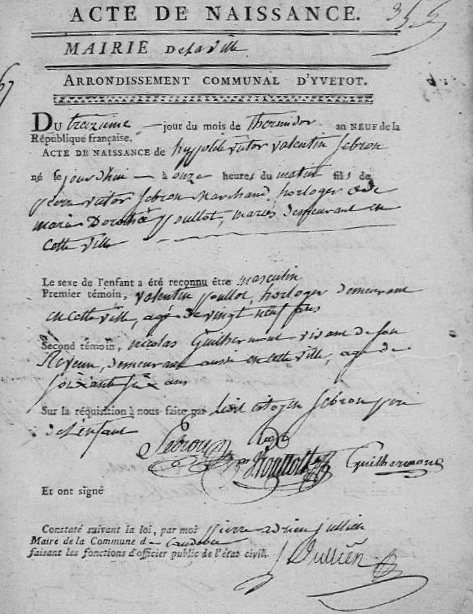 ACTE DE NAISSANCE.
MAIRIE De la ville
ARRONDISSEMENT COMMUNAL D'YVETOT.
DU treizieme jour du mois de thermidor an NEUF de la
République française.
ACTE DE NAISSANCE de hypolite victor valentin Sebron
né ce jourdhui à onze heures du matin fils de
victor Sebron marchand horloger & de
marie Dorothée Houllot, mariés demeurant en
cette ville
Le sexe de l'enfant a été reconnu être masculin
Premier témoin, valentin houllot, horloger demeurant
en cette ville, agé de vingt neuf ans
Second témoin, nicolas Guilhermont vivant de son
Revenu, demeurant aussi en cette ville, age de
soixante six ans
Sur la réquisition à nous faite par ledit citoyen Sebron pere
de l'enfant
Sebron Houllot Guilhermont
Et ont signé
Constaté suivant la loi, par moi pierre adrien jullien
Maire de la Commune de Caudebec
faisant les fonctions d'officier public de l'état civil.
Jullien